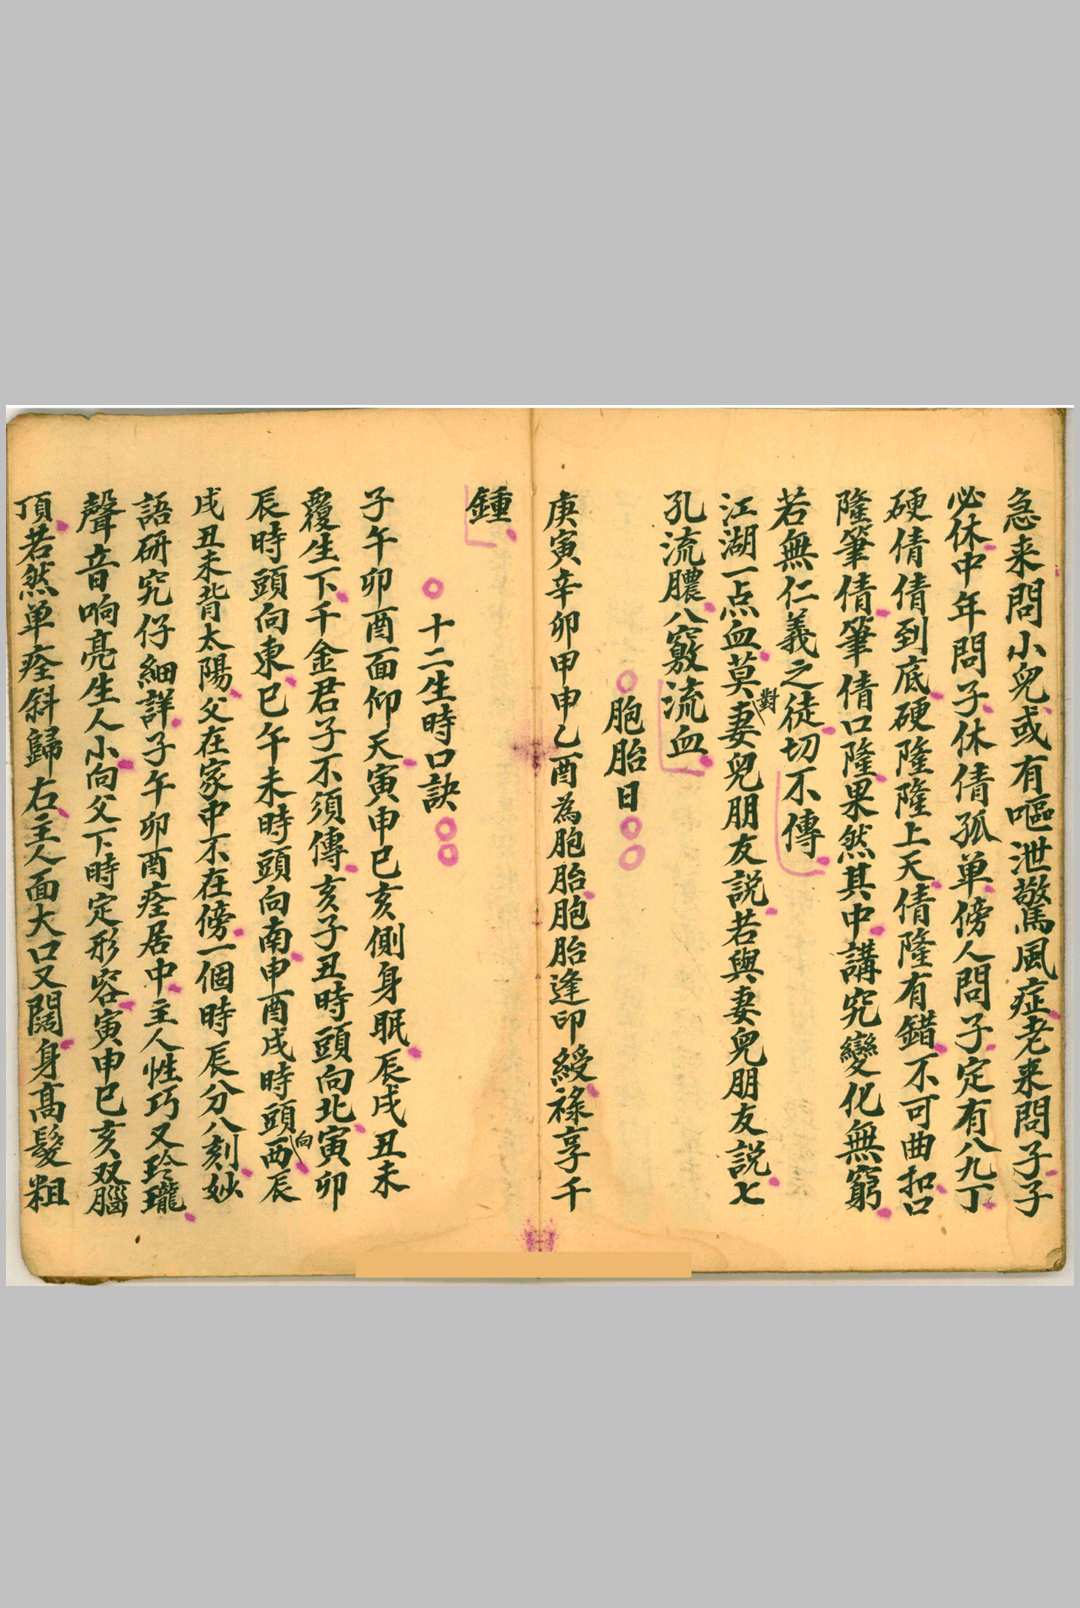 急来問小兒或有嘔泄驚風症老来問子子
必休中年問子休倩孤单傍人問子定有八九丁
硬倩倩到底硬隆隆上天倩隆有錯不可曲扣口
隆筆倩筆倩口隆果然其中講究變化無窮
若無仁義之徒切不傳
江湖一点血莫對妻兒朋友説若與妻兒朋友説七
孔流膿八竅流血
胞胎日
庚寅辛卯甲申乙酉為胞胎胞胎逢印綬祿享千
鍾
十二生時口訣
子午卯酉面仰天寅申巳亥側身眠辰戌丑未
覆生下千金君子不須傳亥子丑時頭向北寅卯
辰時頭向東巳午未時頭向南申酉戌時頭向西辰
戌丑未背太陽父在家中不在傍一個時辰分八刻妙
語研究仔細詳子午卯酉痊居中主人性巧又玲瓏
聲音响亮生人小向父下時定形容寅申巳亥双腦
頂若然单痊斜歸右主人面大口又闊身高髮粗